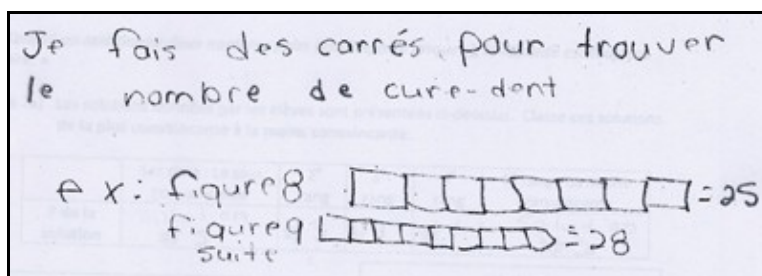 Je fais des carrés pour trouver
le nombre de cure-dent
ex: figure 8 = 25
figure 9 = 28
suite